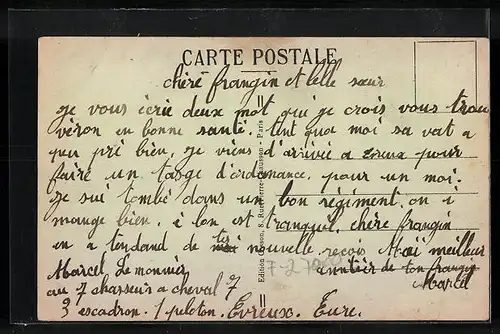 CARTE POSTALE
chèré frangin et belle sœur
je vous écrie deux mot qui je crois vous trou
véron en bonne santé. tent que moi sa vat a
peu pré bien, je viens d'arrivée a Evreux pour
faire un tasge d'ordonance, pour un moi.
je sui tombé dans un bon régiment, on i
mange bien, é lon est tranquil, chère frangin
en a tendand de tes nouvelle reçois Mai meilleur
Marcel Lemonnier
de ton frangin
Marcel
au 7 chasseurs a cheval 7
3 escadron. 1 peloton. Evreux. Eure.
Edition 8, Rue Pierre-Chausson - Paris